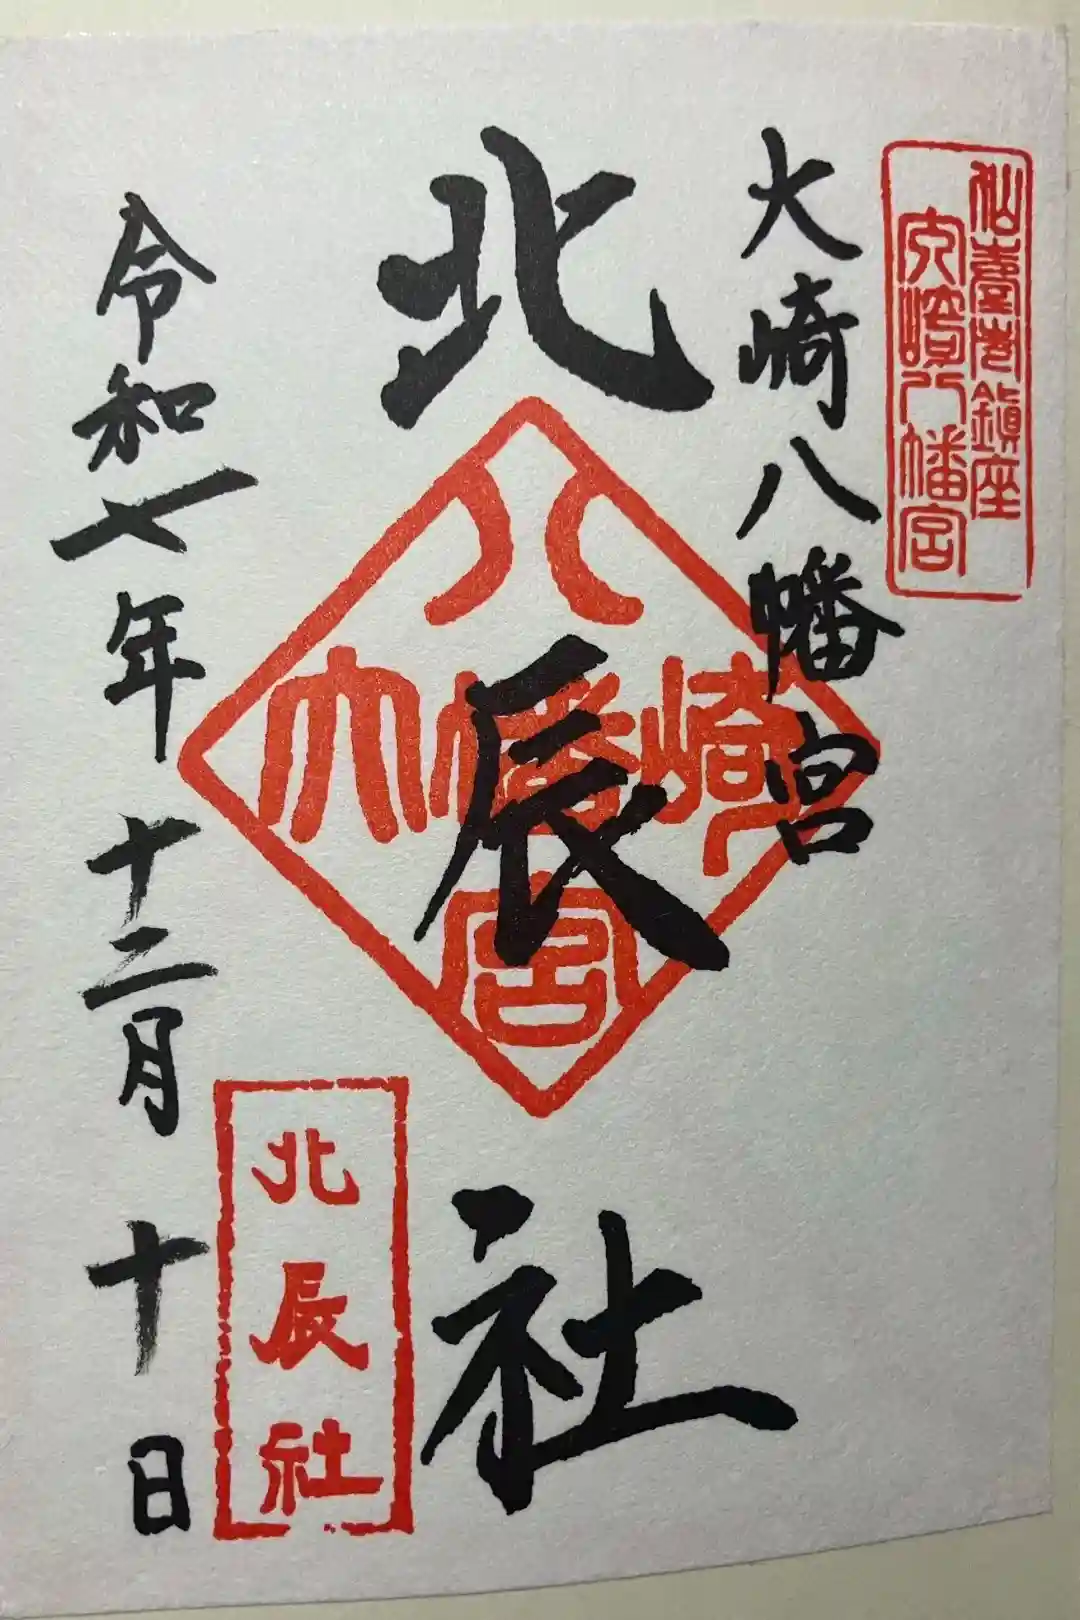 仙臺市鎮座
大崎八幡宮
大崎八幡宮
北辰社
大崎八幡宮
北辰社
令和七年十二月十日